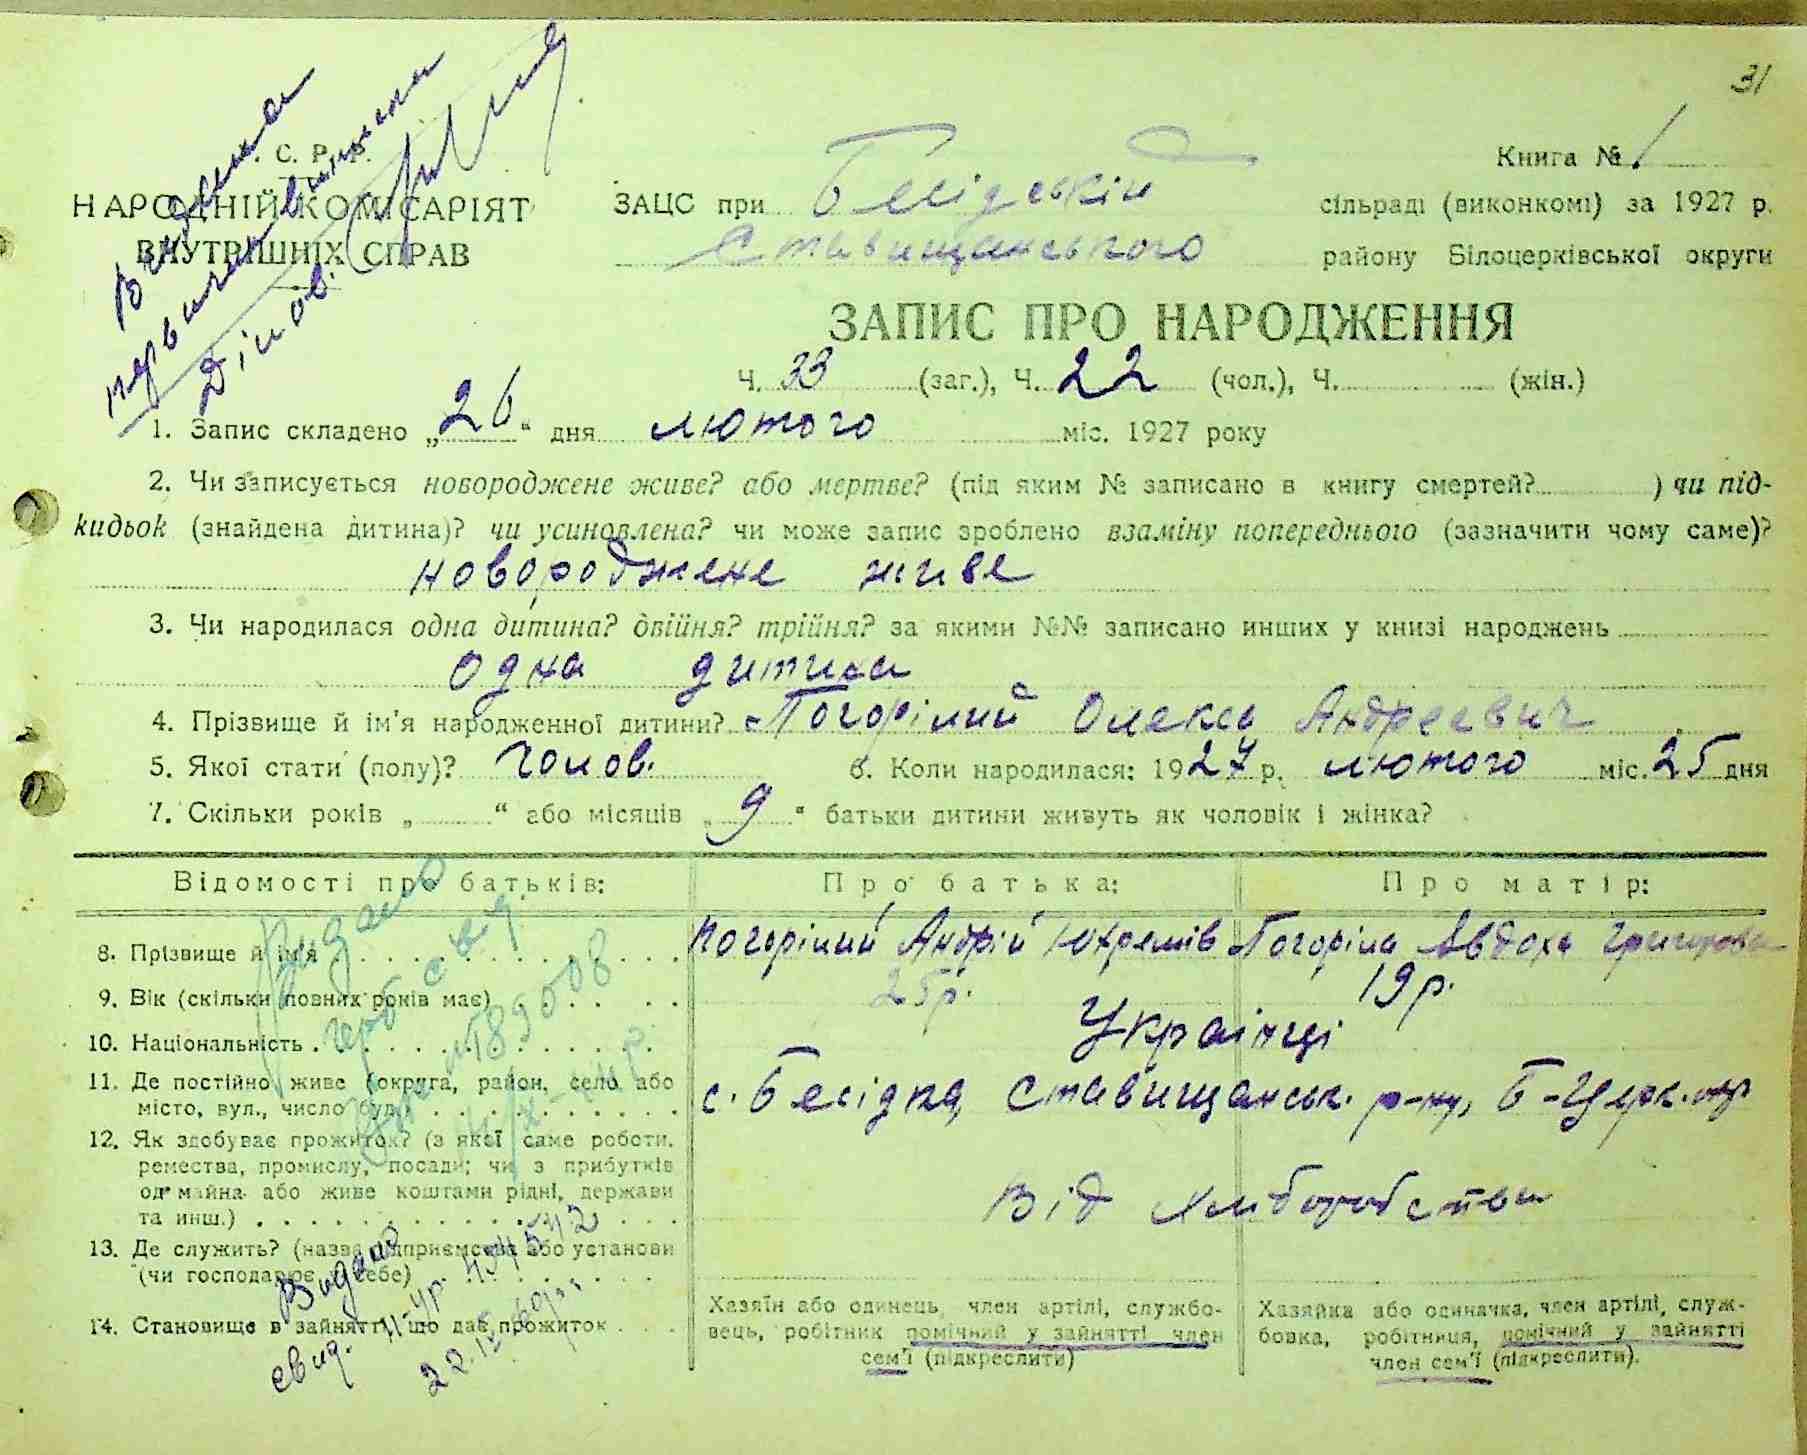 31
. С. Р. Р.
НАРОДНІЙ КОМІСАРІЯТ
ВНУТРІШНІХ СПРАВ
Книга № 1
ЗАЦС при Бесідській сільраді (виконкомі) за 1927 р.
Ставищанського району Білоцерківської округи
ЗАПИС ПРО НАРОДЖЕННЯ
Ч. 33 (заг.), Ч. 22 (чол.), Ч. (жін.)
1. Запис складено „26“ дня лютого міс. 1927 року
2. Чи записується новороджене живе? або мертве? (під яким № записано в книгу смертей? ) чи під-
кидьок (знайдена дитина)? чи усиновлена? чи може запис зроблено взаміну попереднього (зазначити чому саме)?
новороджене живе
3. Чи народилася одна дитина? двійня? трійня? за якими №№ записано инших у книзі народжень
одна дитина
4. Прізвище й ім'я народженної дитини? Погорілий Олекса Андреевич
5. Якої стати (полу)? Чолов. 6. Коли народилася: 1927 р. лютого міс. 25 дня
7. Скільки років „ “ або місяців „9“ батьки дитини живуть як чоловік і жінка?
Відомості про батьків: Про батька: Про матір:
8. Прізвище й ім'я Погорілий Андрій Юхремів Погоріла Авдоха Григорова
9. Вік (скільки повних років має) 25 р. 19 р.
10. Національність Українці
11. Де постійно живе (округа, район, село або
місто, вул., число буд.) с. Бесідка, Ставищанськ. р-ну, Б-Церк. окр
12. Як здобуває прожиток? (з якої саме роботи,
ремества, промислу, посади; чи з прибутків
од майна або живе коштами рідні, держави
та инш.) Від хліборобства
13. Де служить? (назва підприємства або установи
(чи господарює у себе)
14. Становище в зайнятті, що дає прожиток
Хазяїн або одинець, член артілі, службо-
вець, робітник помічний у зайнятті член
сем'ї (підкреслити)
Хазяйка або одиначка, член артілі, служ-
бовка, робітниця, помічний у зайнятті
член сем'ї (підкреслити).
Видано
свид.
22.12.